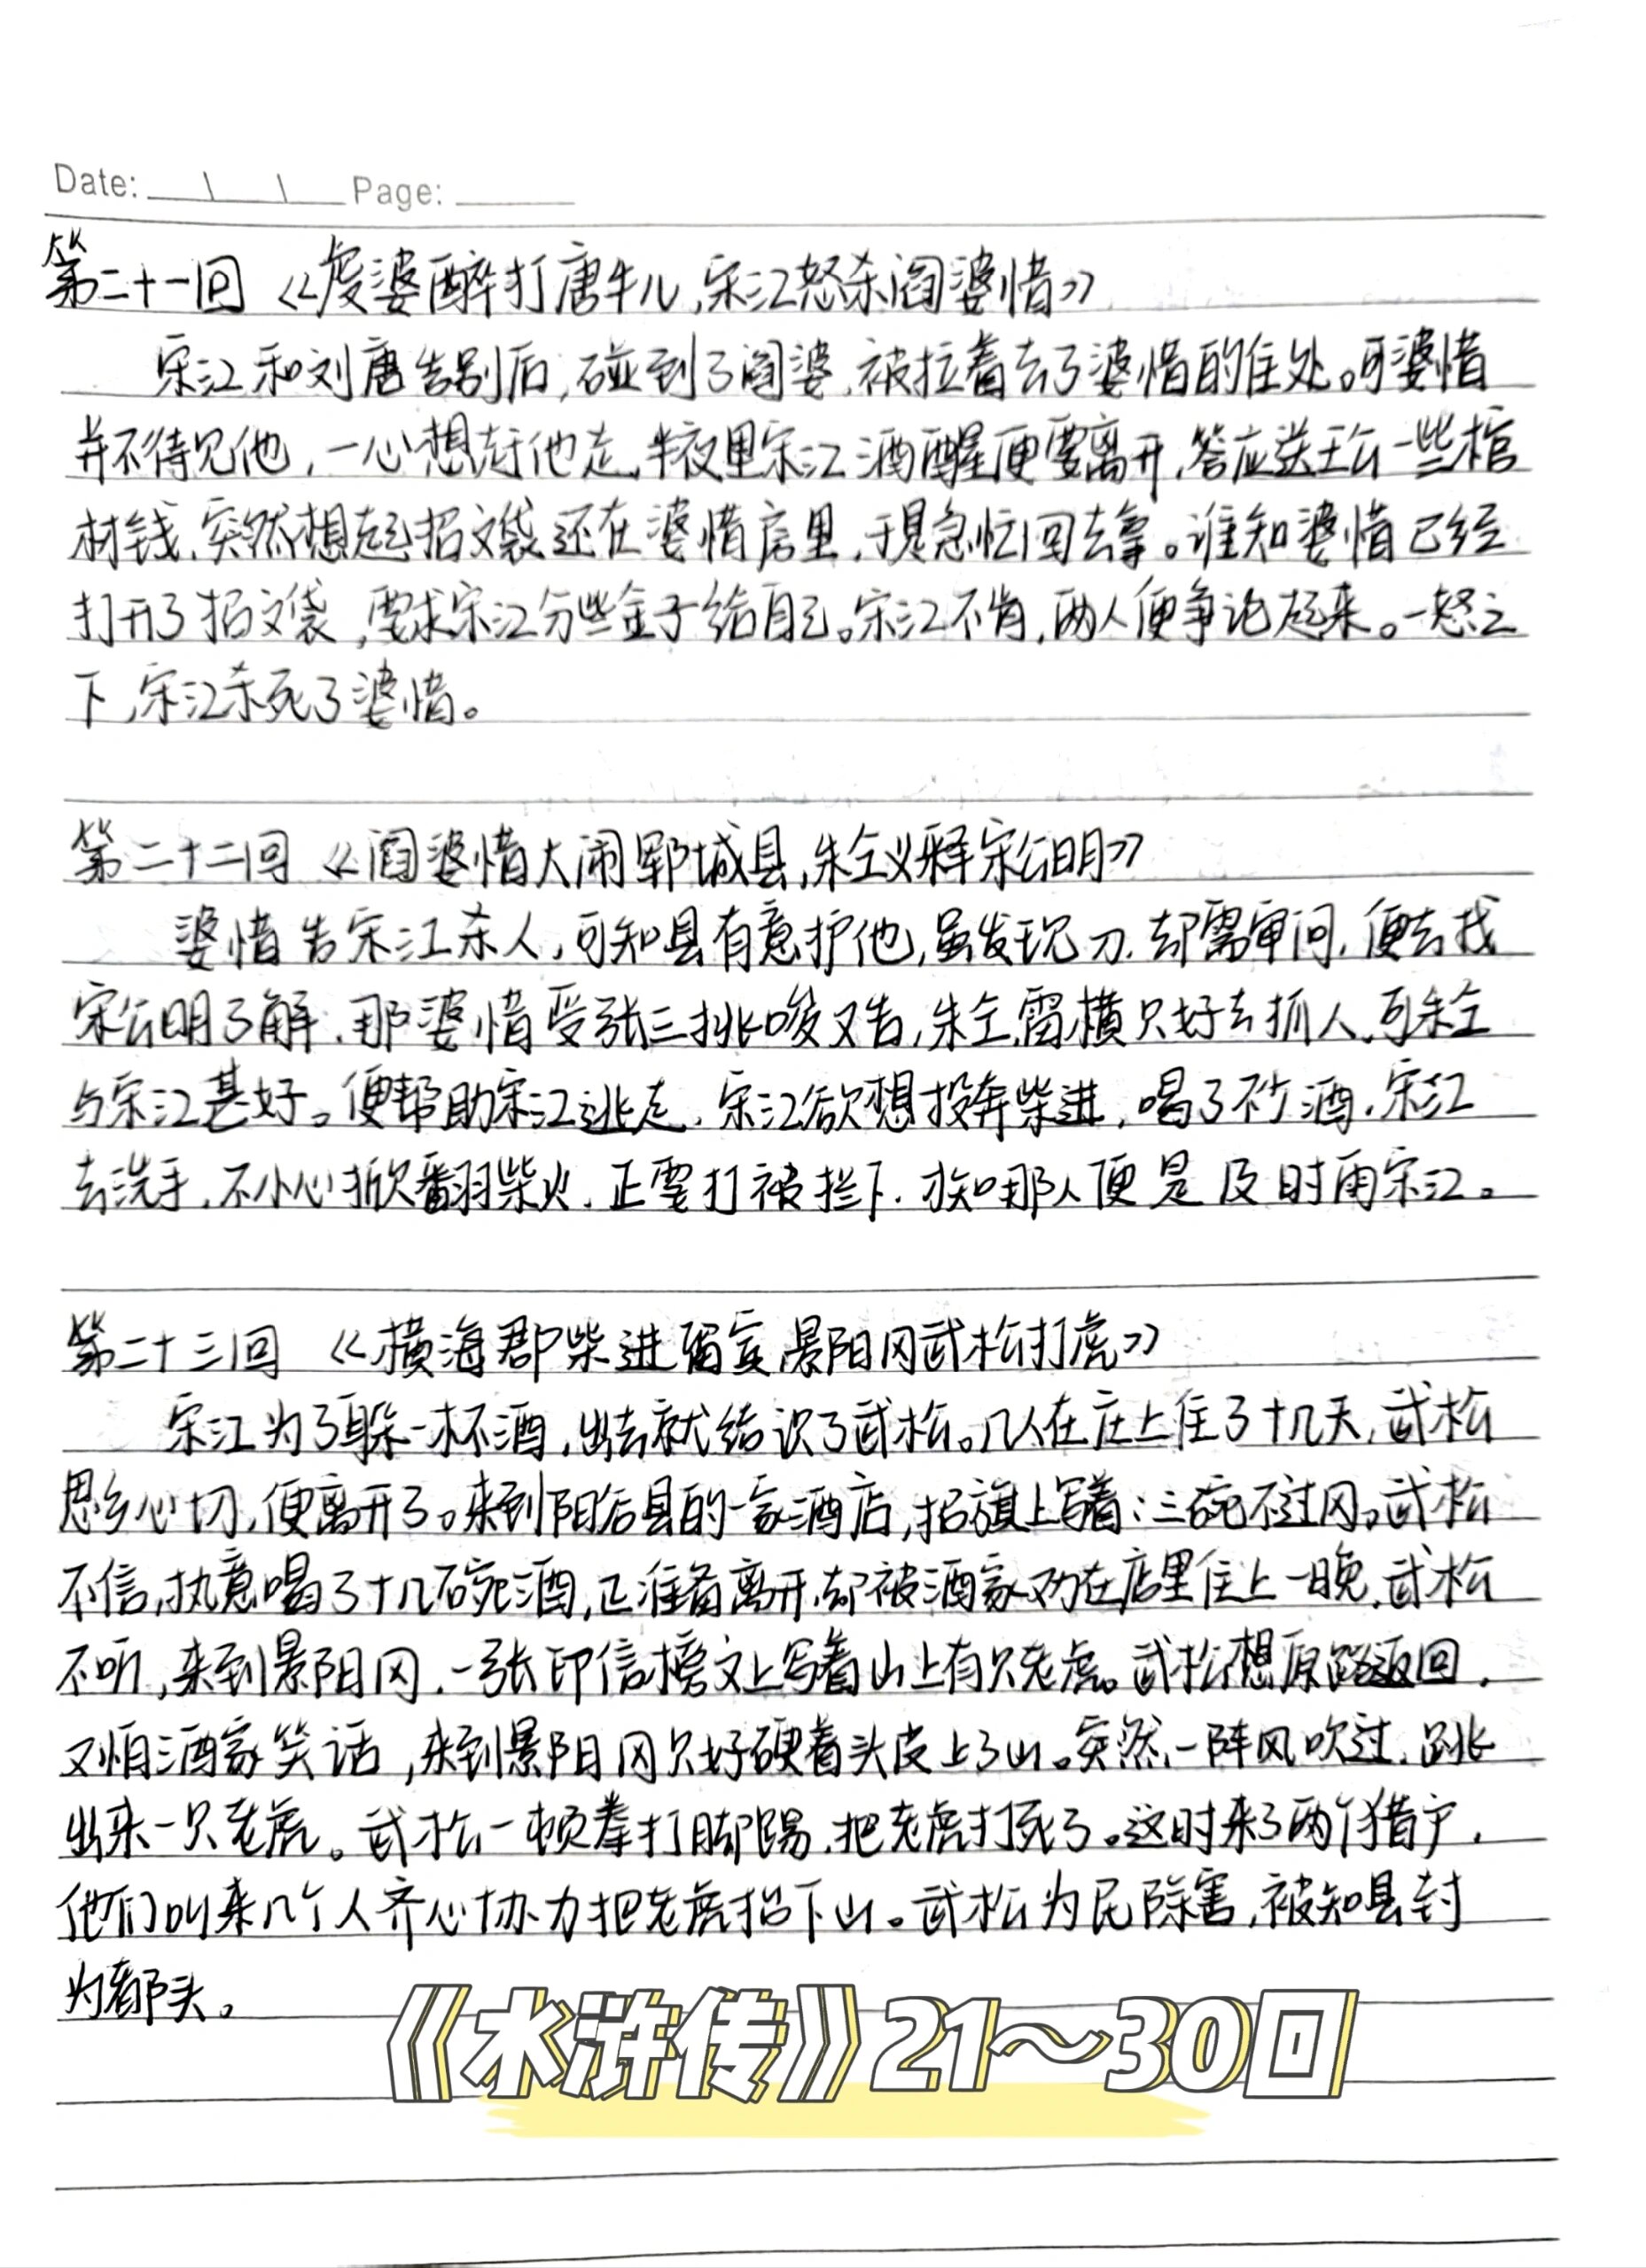 Date: \ \ Page:
第二十一回《虔婆醉打唐牛儿,宋江怒杀阎婆惜》
宋江和刘唐告别后,碰到了阎婆,被拉着去了婆惜的住处。可婆惜
并不待见他,一心想赶他走,半夜里宋江酒醒便要离开,答应送王公一些棺
材钱,突然想起招文袋还在婆惜房里,于是急忙回去拿。谁知婆惜已经
打开了招文袋,要求宋江分些金子给自己。宋江不肯,两人便争论起来。一怒之
下,宋江杀死了婆惜。
第二十二回《阎婆惜大闹郓城县,朱仝义释宋公明》
婆惜告宋江杀人,可知县有意护他,虽发现刀,却需审问,便去找
宋公明了解,那婆惜受张三挑唆又告,朱仝,雷横只好去抓人,可朱仝
与宋江甚好。便帮助宋江逃走,宋江欲想投奔柴进,喝了不少酒,宋江
去洗手,不小心掀翻柴火,正要打被拦下,才知那人便是及时雨宋江。
第二十三回《横海郡柴进留宾,景阳冈武松打虎》
宋江为了躲一杯酒,出去就结识了武松。几人在庄上住了十几天,武松
思乡心切,便离开了。来到阳谷县的一家酒店,招旗上写着:三碗不过冈。武松
不信,执意喝了十几碗酒,正准备离开,却被酒家劝在店里住上一晚,武松
不听,来到景阳冈,一张印信榜文上写着山上有只老虎。武松想原路返回,
又怕酒家笑话,来到景阳冈只好硬着头皮上了山。突然,一阵风吹过,跳
出来一只老虎。武松一顿拳打脚踢,把老虎打死了。这时来了两个猎户,
他们叫来几个人齐心协力把老虎抬下山。武松为民除害,被知县封
为都头。
《水浒传》21～30回